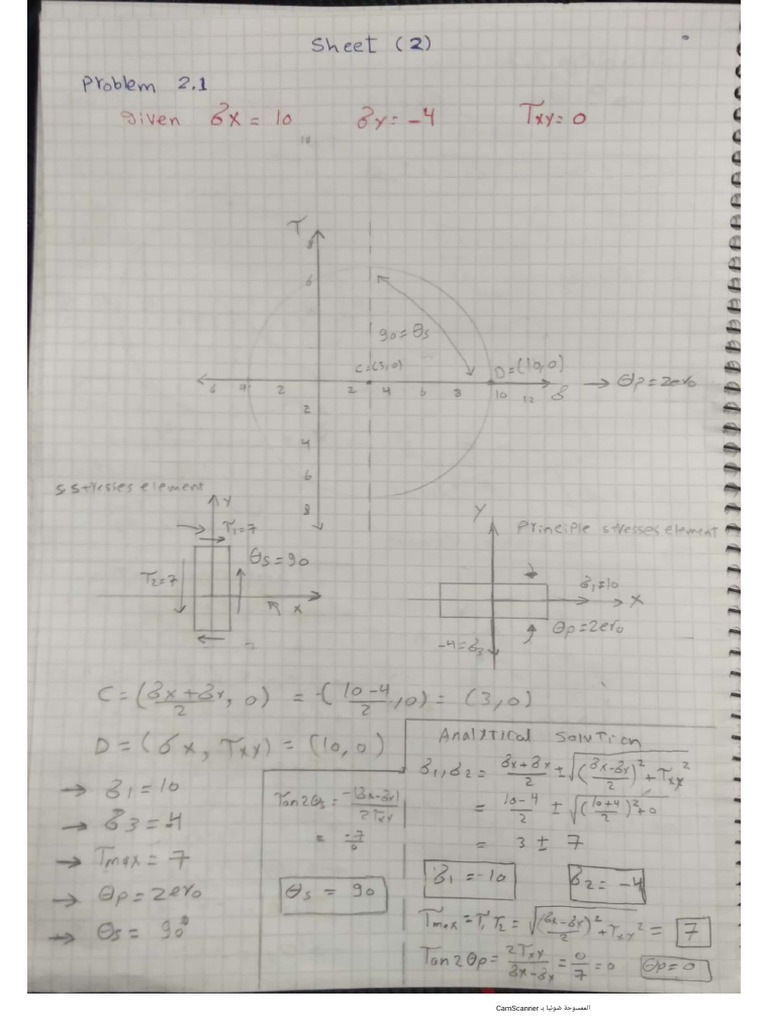 Sheet (2)
Problem 2.1
given σx = 10 σy = -4 Txy = 0
10
T
8
6
90 = θs
C=(3,0) D=(10,0)
6 4 2 2 4 6 8 10 12 σ → θp = zero
2
4
6
8
s stresses element
Y
T1=7
θs = 90
T2=7
x
Y
Principle stresses element
σ1=10
X
θp = zero
-4=σ3
C = (σx+σy/2, 0) = (10-4/2, 0) = (3,0)
D = (σx, Txy) = (10,0)
→ σ1 = 10
→ σ3 = 4
→ Tmax = 7
→ θp = zero
→ θs = 90°
Tan2θs = -(σx-σy)/2Txy
= -7/0
θs = 90
Analytical solution
σ1,σ2 = σx+σy/2 ± √(σx-σy/2)²+Txy²
= 10-4/2 ± √(10+4/2)²+0
= 3 ± 7
σ1 = -10 σ2 = -4
Tmax = T1 T2 = √(σx-σy/2)²+Txy² = 7
Tan2θp = 2Txy/σx-σy = 0/7 = 0 θp=0
الممسوحة ضوئيا بـ CamScanner